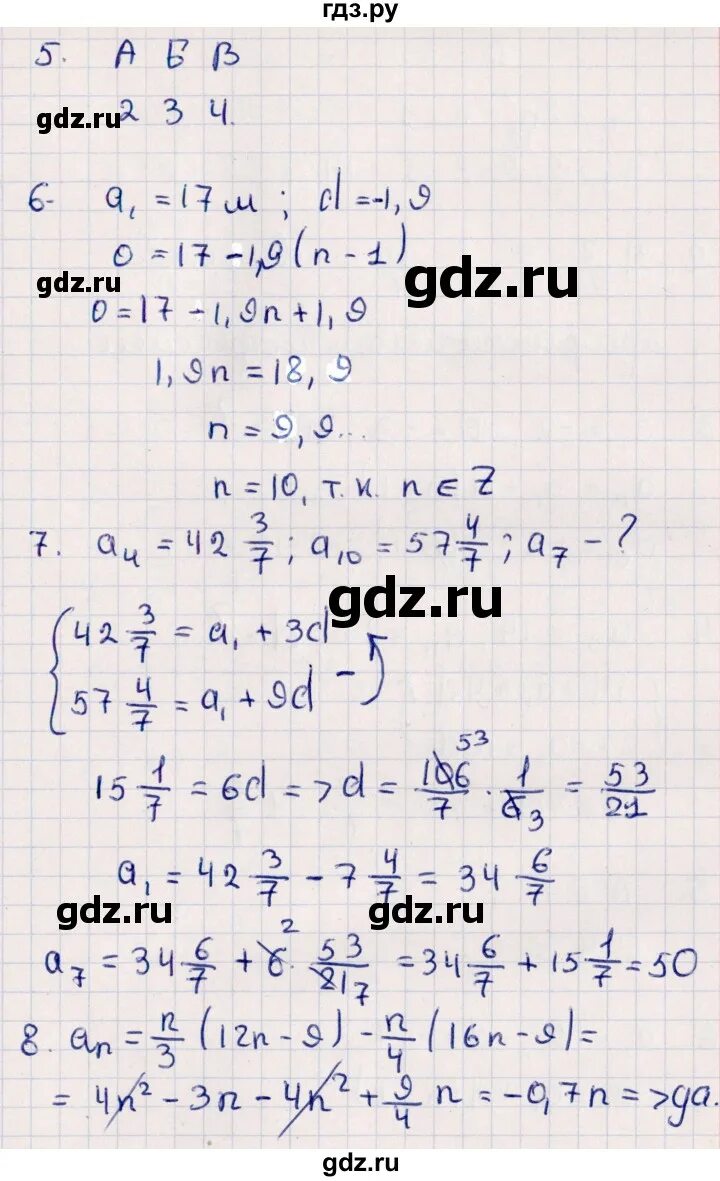 гдз.ру
5. А Б В
gdz.ru
2 3 4.
6. a₁ = 17м ; d = -1,9
0 = 17 - 1,9(n - 1)
gdz.ru gdz.ru
0 = 17 - 1,9n + 1,9
1,9n = 18,9
n = 9,9...
n = 10, т.к. n ∈ Z
7. a₄ = 42 3/7 ; a₁₀ = 57 4/7 ; a₇ - ?
gdz.ru
{ 42 3/7 = a₁ + 3d
57 4/7 = a₁ + 9d -
15 1/7 = 6d => d = 106/7 · 1/6 = 53/21
53 3
a₁ = 42 3/7 - 7 4/7 = 34 6/7
gdz.ru gdz.ru
a₇ = 34 6/7 + 6 · 53/21 = 34 6/7 + 15 1/7 = 50
2 7
8. aₙ = n/3 (12n - 9) - n/4 (16n - 9) =
= 4n² - 3n - 4n² + 9/4 n = -0,7n => да.
gdz.ru